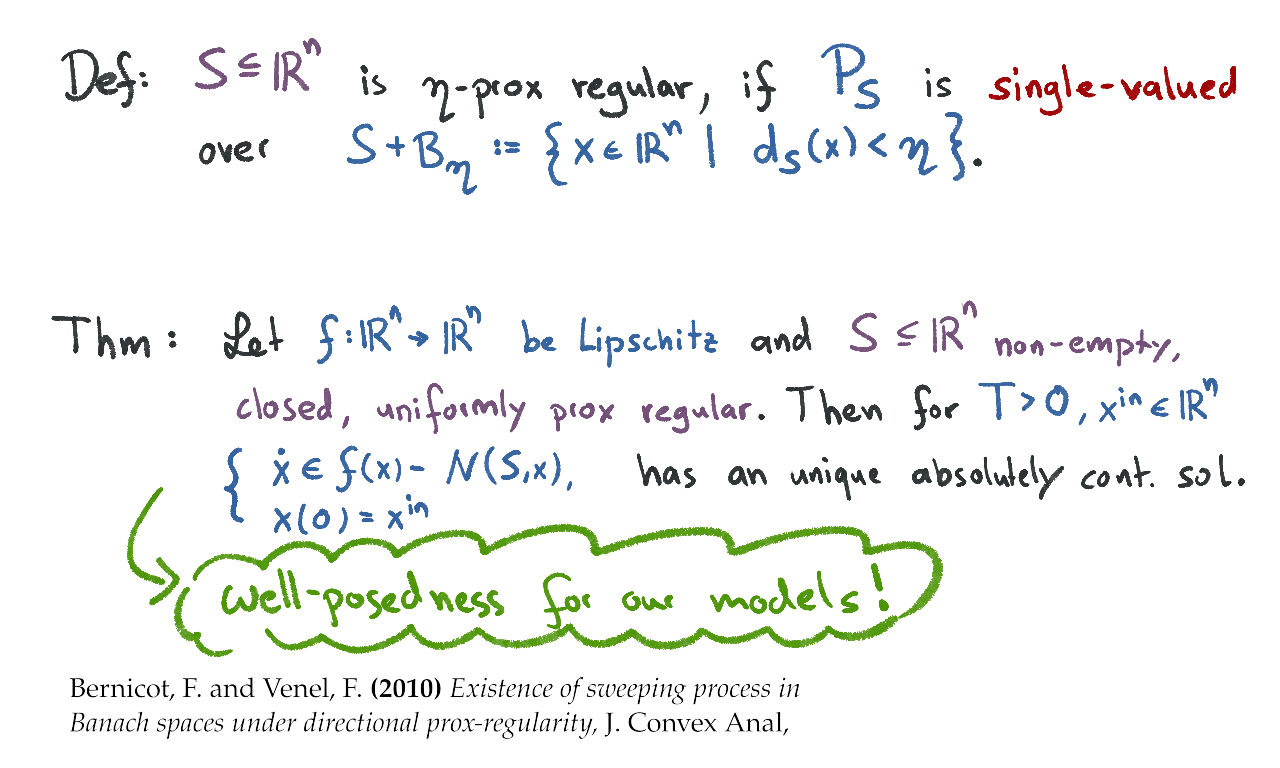 Def: S ⊆ ℝⁿ is η-prox regular, if P_S is single-valued
over S + B_η := { x ∈ ℝⁿ | d_S(x) < η }.
Thm: Let f: ℝⁿ → ℝⁿ be Lipschitz and S ⊆ ℝⁿ non-empty,
closed, uniformly prox regular. Then for T > 0, xⁱⁿ ∈ ℝⁿ
{ ẋ ∈ f(x) - N(S,x), has an unique absolutely cont. sol.
x(0) = xⁱⁿ
well-posedness for our models!
Bernicot, F. and Venel, F. (2010) Existence of sweeping process in
Banach spaces under directional prox-regularity, J. Convex Anal,